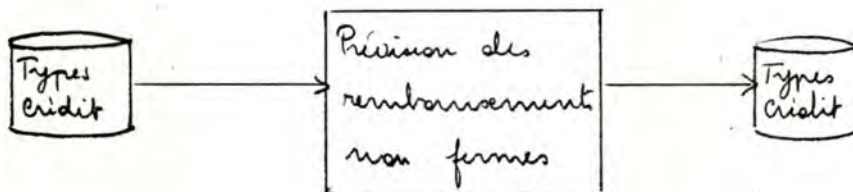 Types
Crédit
Prévision des
remboursements
non fermes
Types
Crédit